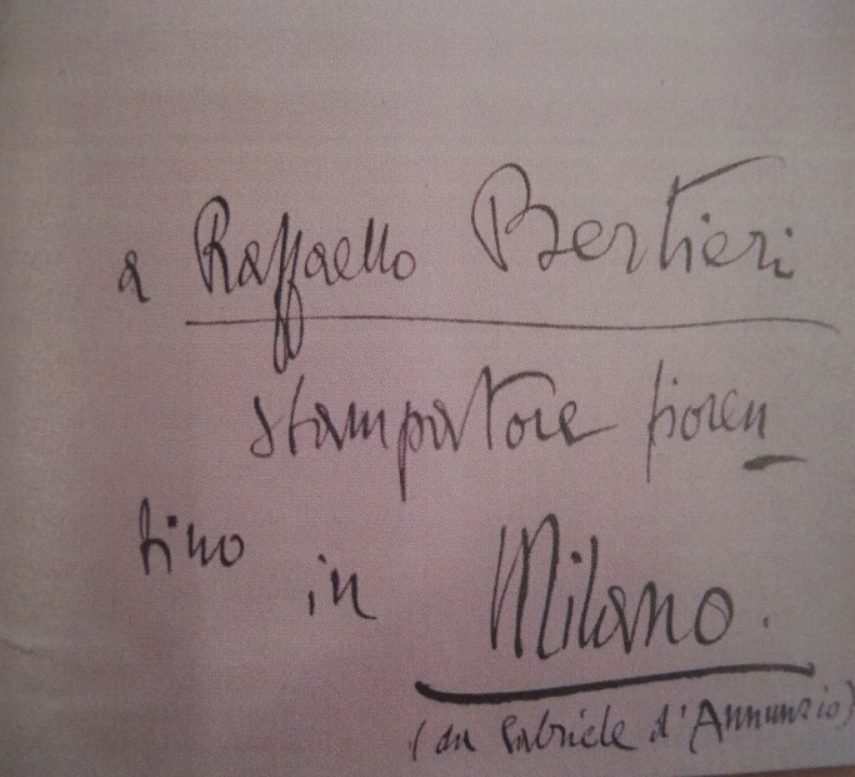 a Raffaello Bertieri
stampatore fioren_
tino in Milano.
(da Gabriele d'Annunzio)